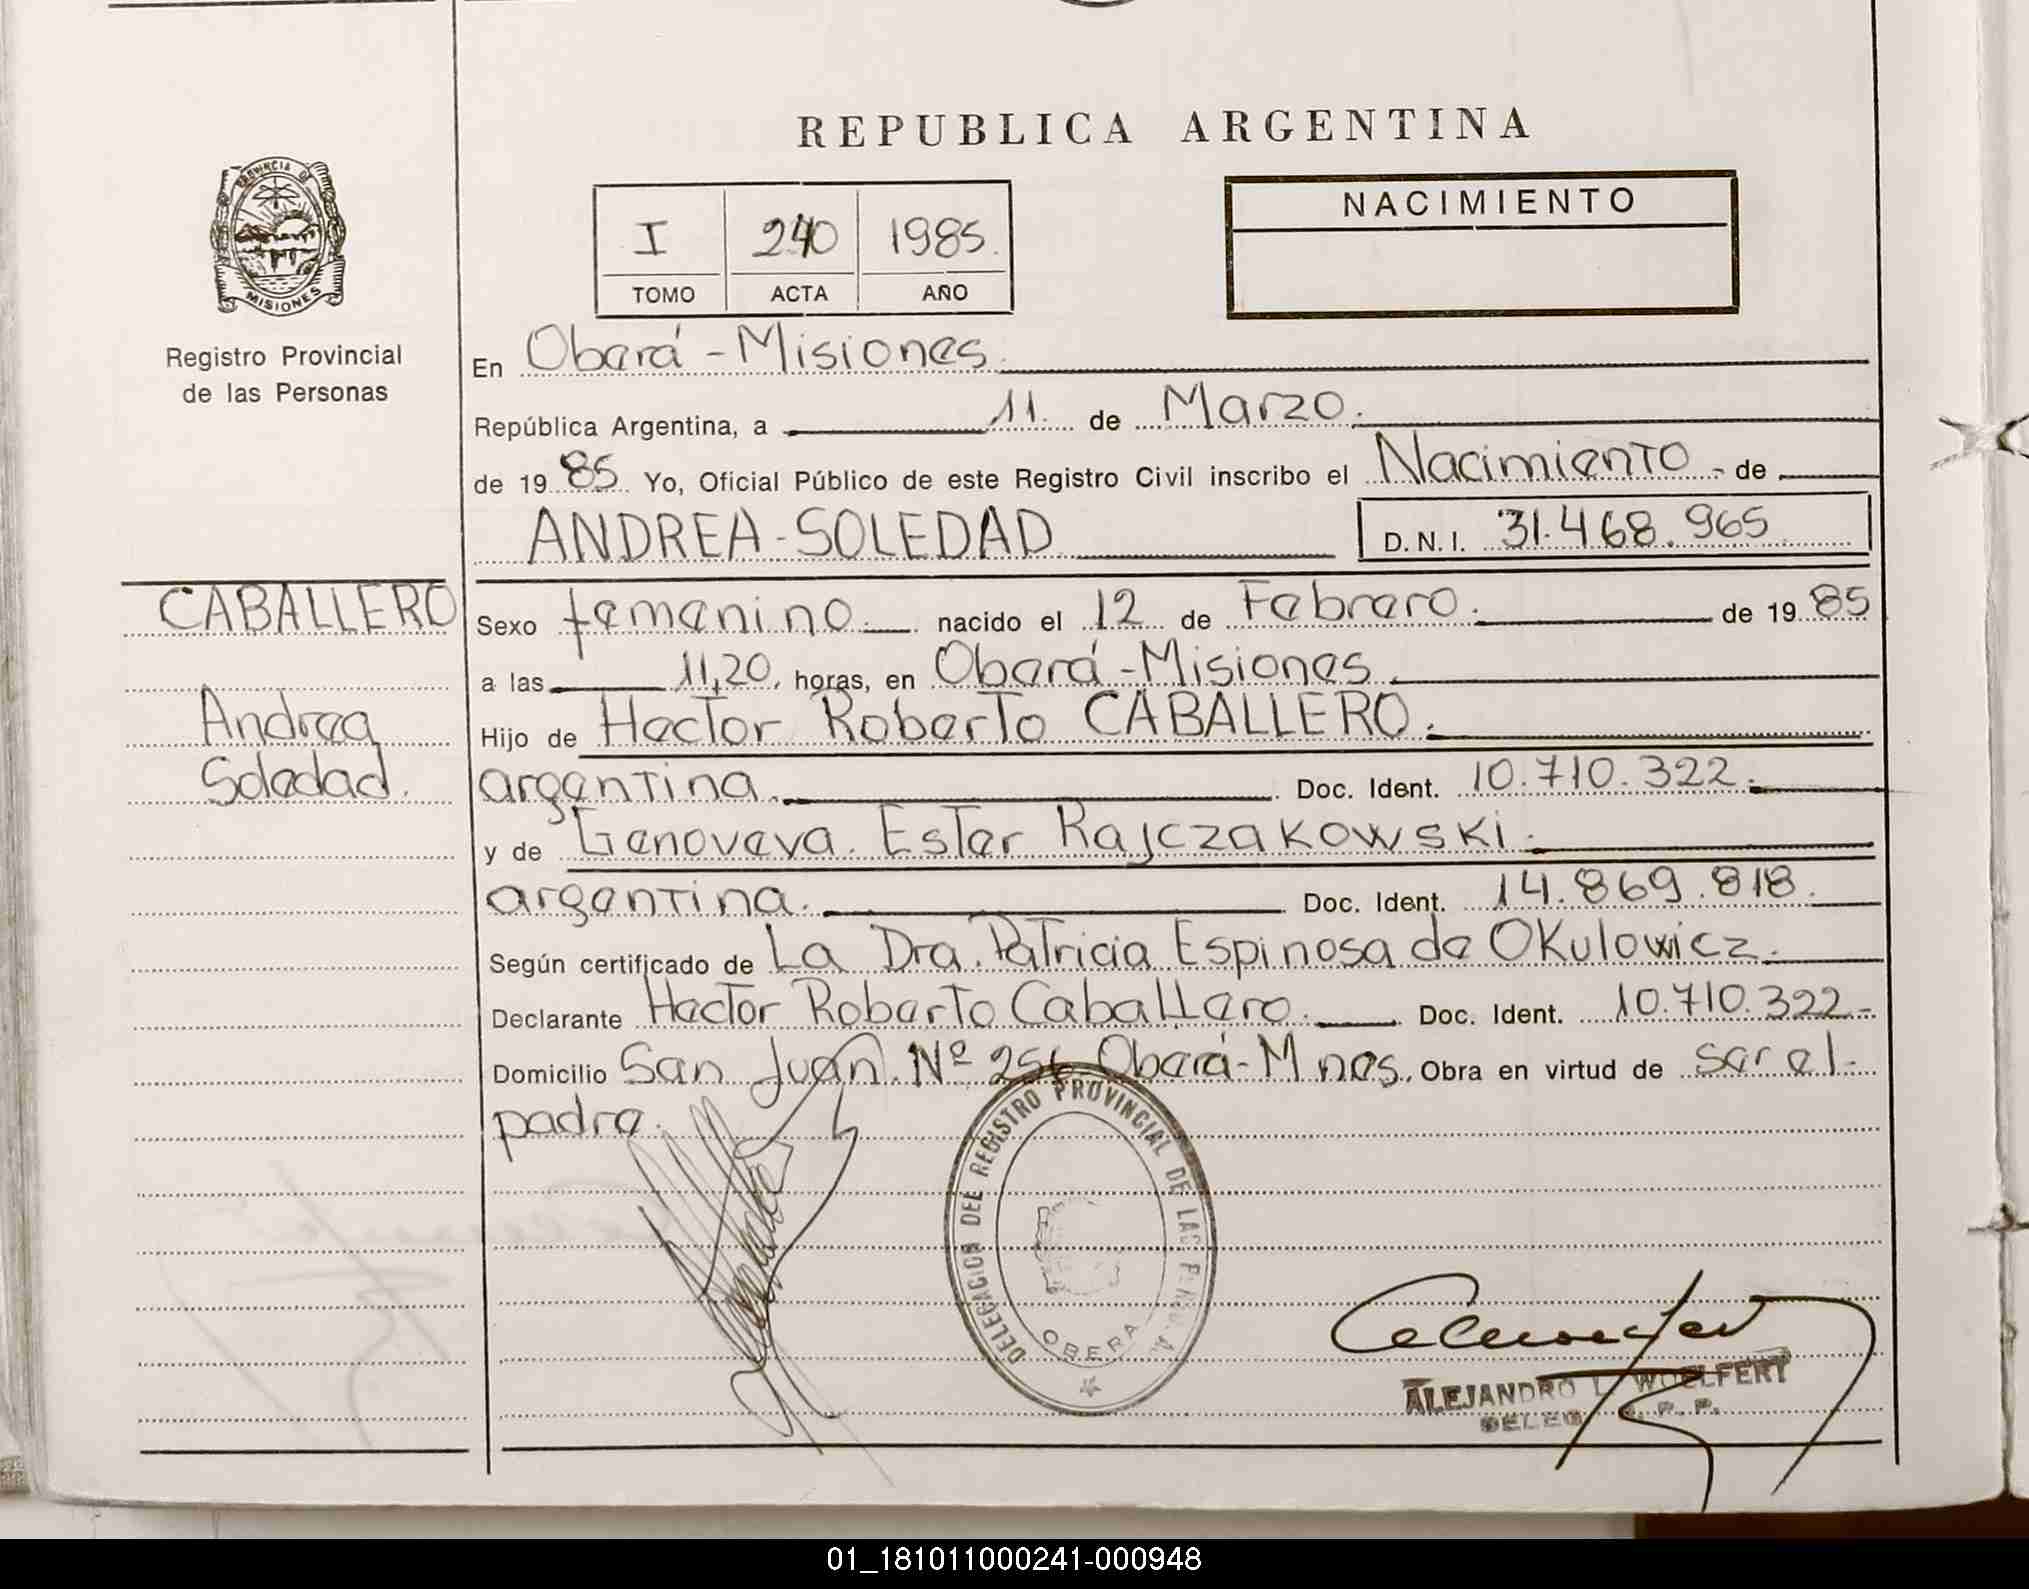 REPUBLICA ARGENTINA
PROVINCIA DE
MISIONES
Registro Provincial
de las Personas
I 240 1985.
TOMO ACTA AÑO
NACIMIENTO
En Oberá - Misiones.
República Argentina, a 11. de Marzo.
de 1985. Yo, Oficial Público de este Registro Civil inscribo el Nacimiento.- de
ANDREA - SOLEDAD D.N.I. 31.468.965
CABALLERO
Andrea
Soledad.
Sexo femenino. nacido el 12 de Febrero. de 1985
a las 11,20, horas, en Oberá - Misiones.
Hijo de Hector Roberto CABALLERO.
argentina. Doc. Ident. 10.710.322.
y de Genoveva. Ester Rajczakowski.
argentina. Doc. Ident. 14.869.818.
Según certificado de La Dra. Patricia Espinosa de Okulowicz.
Declarante Hector Roberto Caballero. Doc. Ident. 10.710.322.-
Domicilio San Juan. Nº 256-Oberá-Mnes. Obra en virtud de ser el-
padre.
DELEGACION DEL REGISTRO PROVINCIAL DE LAS
OBERA
ALEJANDRO L. WOELFERT
DELEG R. P. P.
01_181011000241-000948